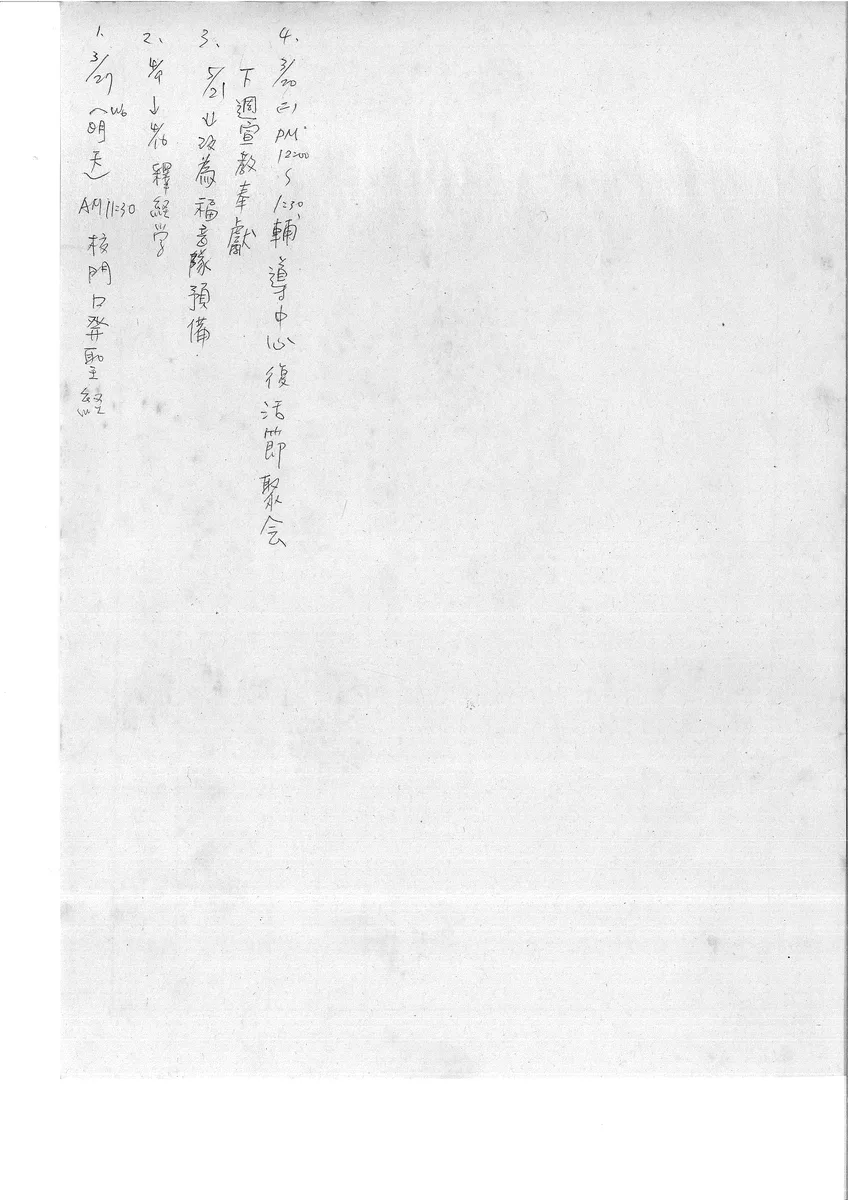 1. 3/27 (明天) AM 11:30 校門口発聖経
2、4/9 ↓ 4/16 釋経学
3、5/21 改為福音隊預備.
下週宣教奉獻
4、3/20 (二) PM 12:00 ~ 1:30, 輔導中心復活節聚会